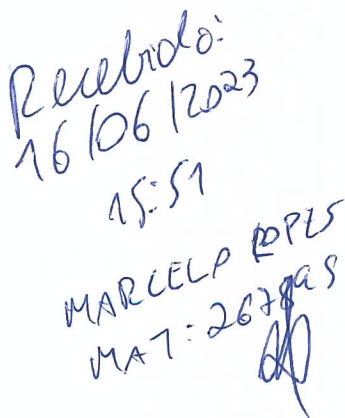 Recebido:
16/06/2023
15:51
MARCELO LOPES
MAT: